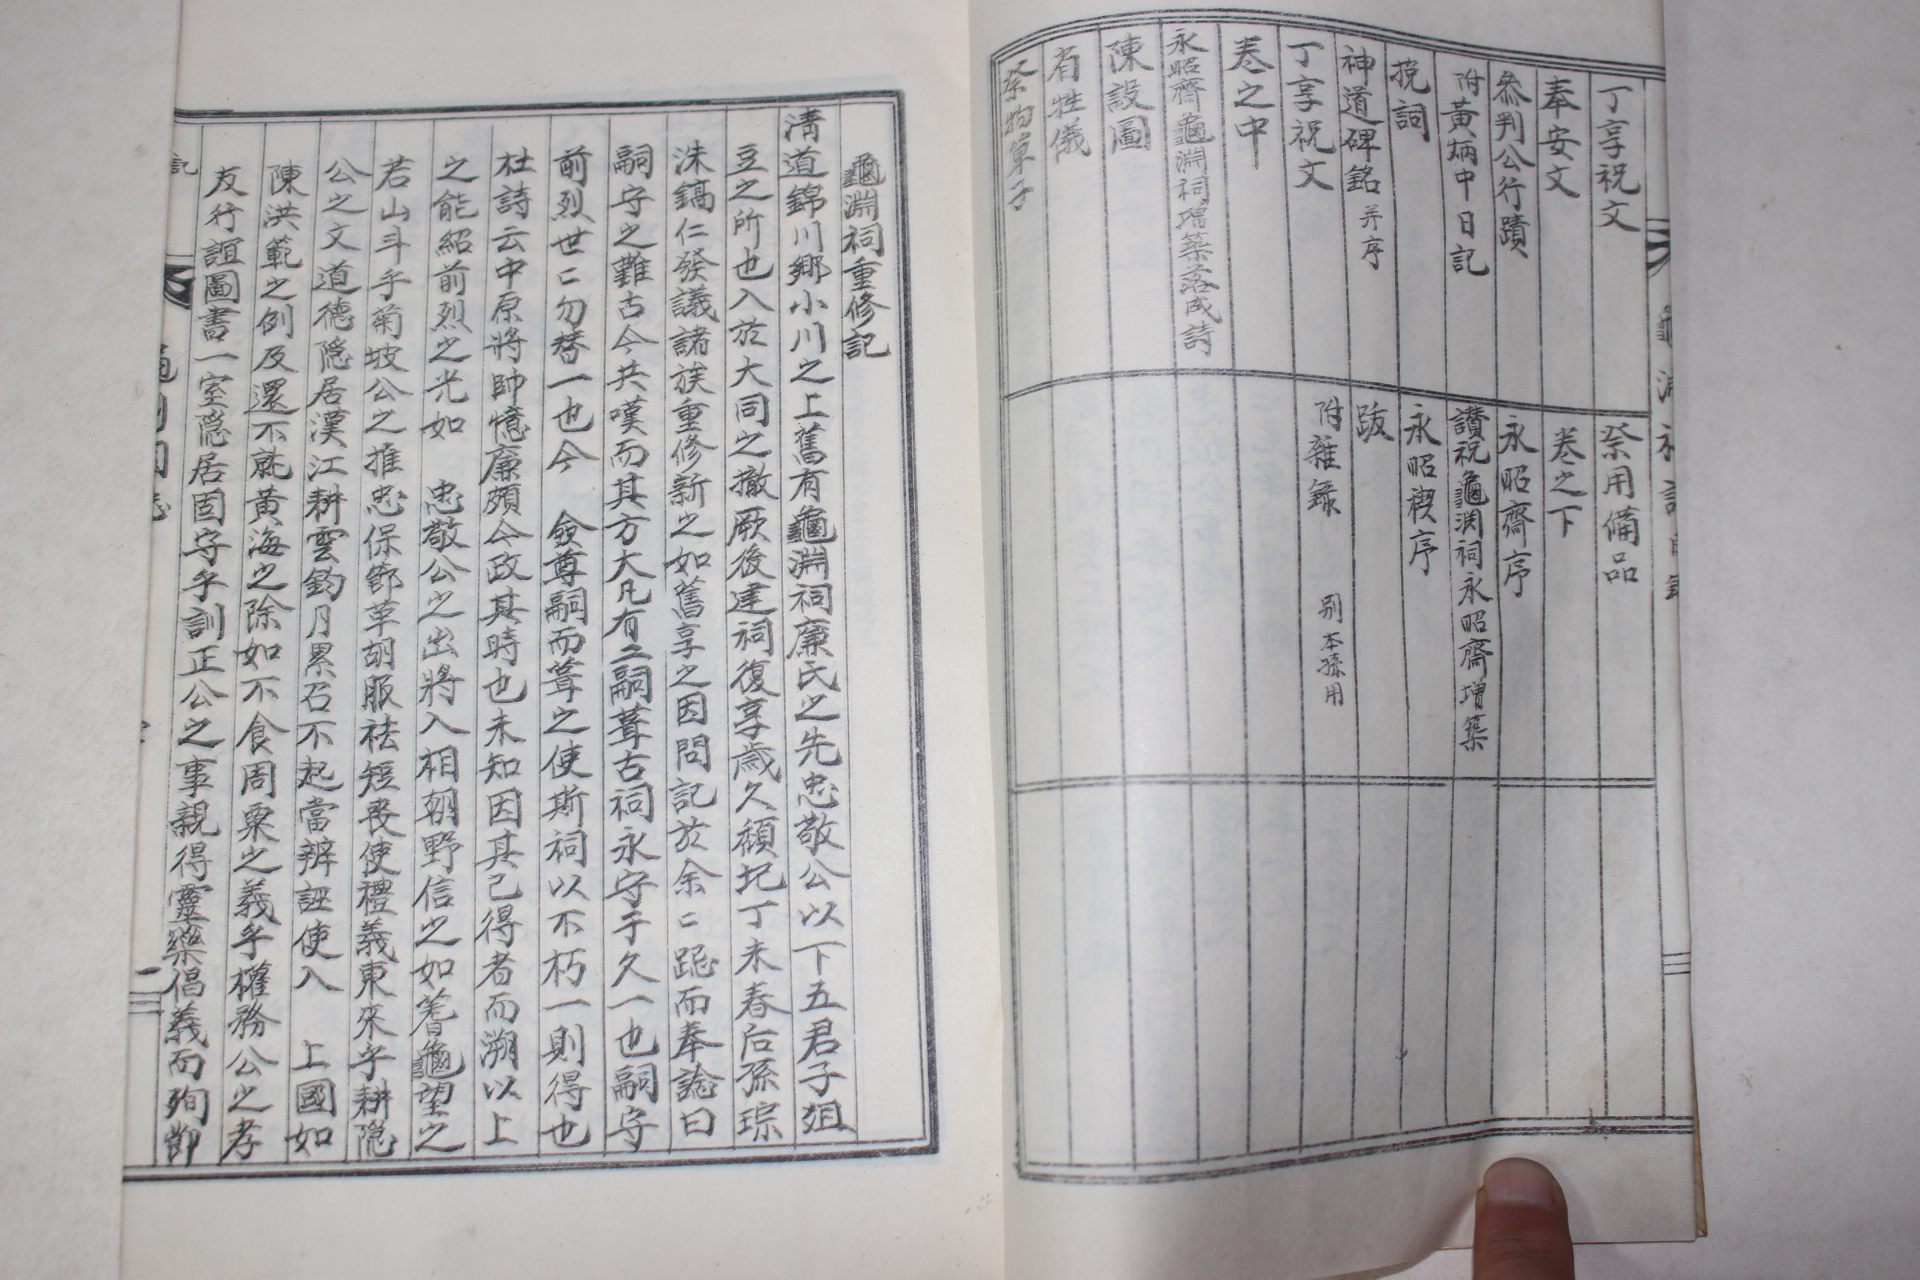 丁享祝文
奉安文
叅判公行蹟
附黃炳中日記
挽詞
神道碑銘 并序
丁享祝文
卷之中
永昭齋龜淵祠增築落成詩
陳設圖
省牲儀
祭物單子
祭用備品
卷之下
永昭齋序
讃祝龜淵祠永昭齋增築
永昭稧序
跋
附雜錄 別本孫用
龜淵祠重修記
淸道錦川鄕小川之上舊有龜淵祠廉氏之先忠敬公以下五君子俎
豆之所也入於大同之撤厥後建祠復享歲久頹圮丁未春后孫琮
洙鎬仁發議諸族重修新之如舊享之因問記於余二跪而奉諗曰
嗣守之難古今共嘆而其方大凡有二嗣葺古祠永守于久一也嗣守
前烈世二勿替一也今 僉尊嗣而葺之使斯祠以不朽一則得也
杜詩云中原將帥憶廉頗今政其時也未知因其已得者而溯以上
之能紹前烈之光如 忠敬公之出將入相朝野信之如蓍龜望之
若山斗乎菊坡公之推忠保節革胡服袪短喪使禮義東來乎耕隐
公之文道德隐居漢江耕雲釣月累召不起當辨誣使入 上國如
陳洪範之例及還不就黃海之除如不食周粟之義乎權務公之孝
友行誼圖書一室隐居固守乎訓正公之事親得靈藥倡義而殉節
記
二